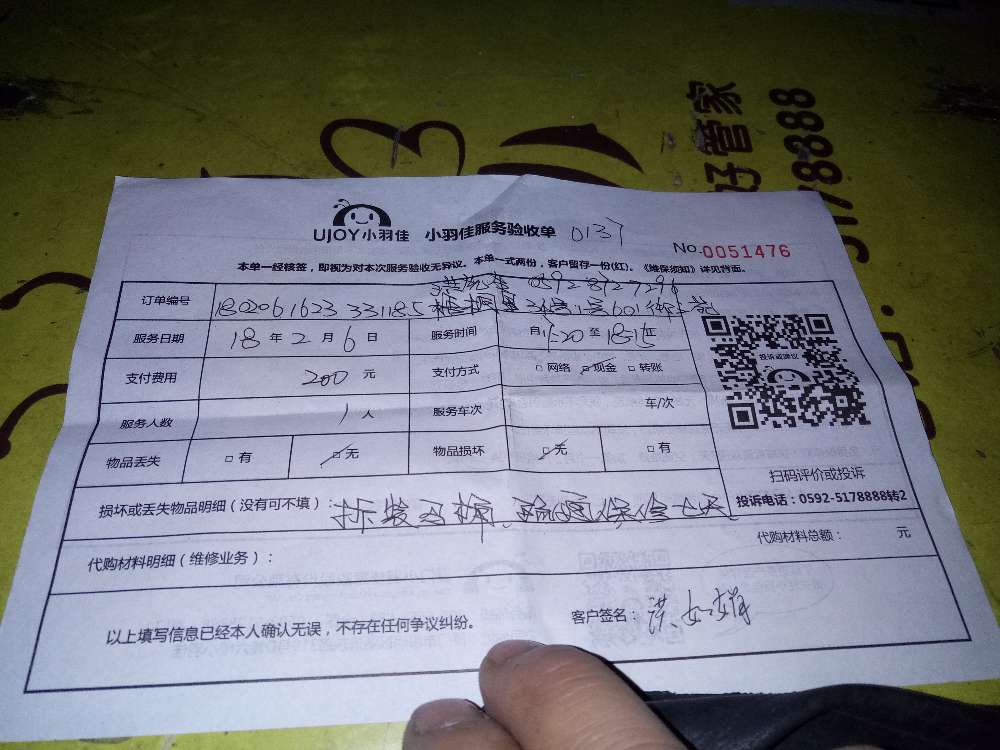 好管家
5178888
UJOY小羽佳 小羽佳服务验收单 0137
No.0051476
本单一经核签，即视为对本次服务验收无异议。本单一式两份，客户留存一份(红)。《维保须知》详见背面。
0592 8727296
订单编号 180206162333118.5 601
服务日期 18 年 2 月 6 日 服务时间 自 :20 至 18:15
投诉或建议
支付费用 200 元 支付方式 □ 网络 □ 现金 □ 转账
服务人数 1 人 服务车次 车/次
物品丢失 □ 有 □ 无 物品损坏 □ 无 □ 有
扫码评价或投诉
投诉电话：0592-5178888转2
损坏或丢失物品明细（没有可不填）： 拆装马桶、疏通保修七天
代购材料明细（维修业务）： 代购材料总额： 元
以上填写信息已经本人确认无误，不存在任何争议纠纷。 客户签名：